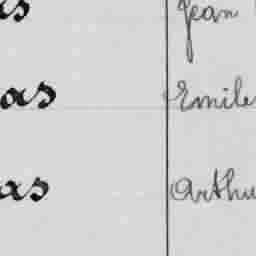 as Jean
as Emile
as Arthu